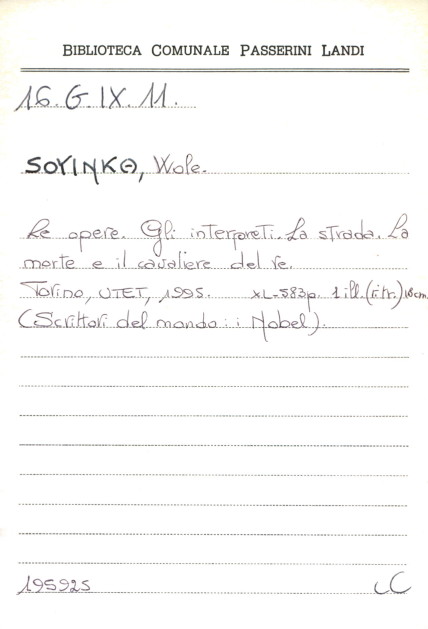 BIBLIOTECA COMUNALE PASSERINI LANDI
16. G. IX. 11.
SOYINKA, Wole.
Le opere. Gli interpreti. La strada. La
morte e il cavaliere del re.
Torino, UTET, 1995. XL-583p. 1 ill. (ritr.) 18cm
(Scrittori del mondo : i Nobel).
195925 CC